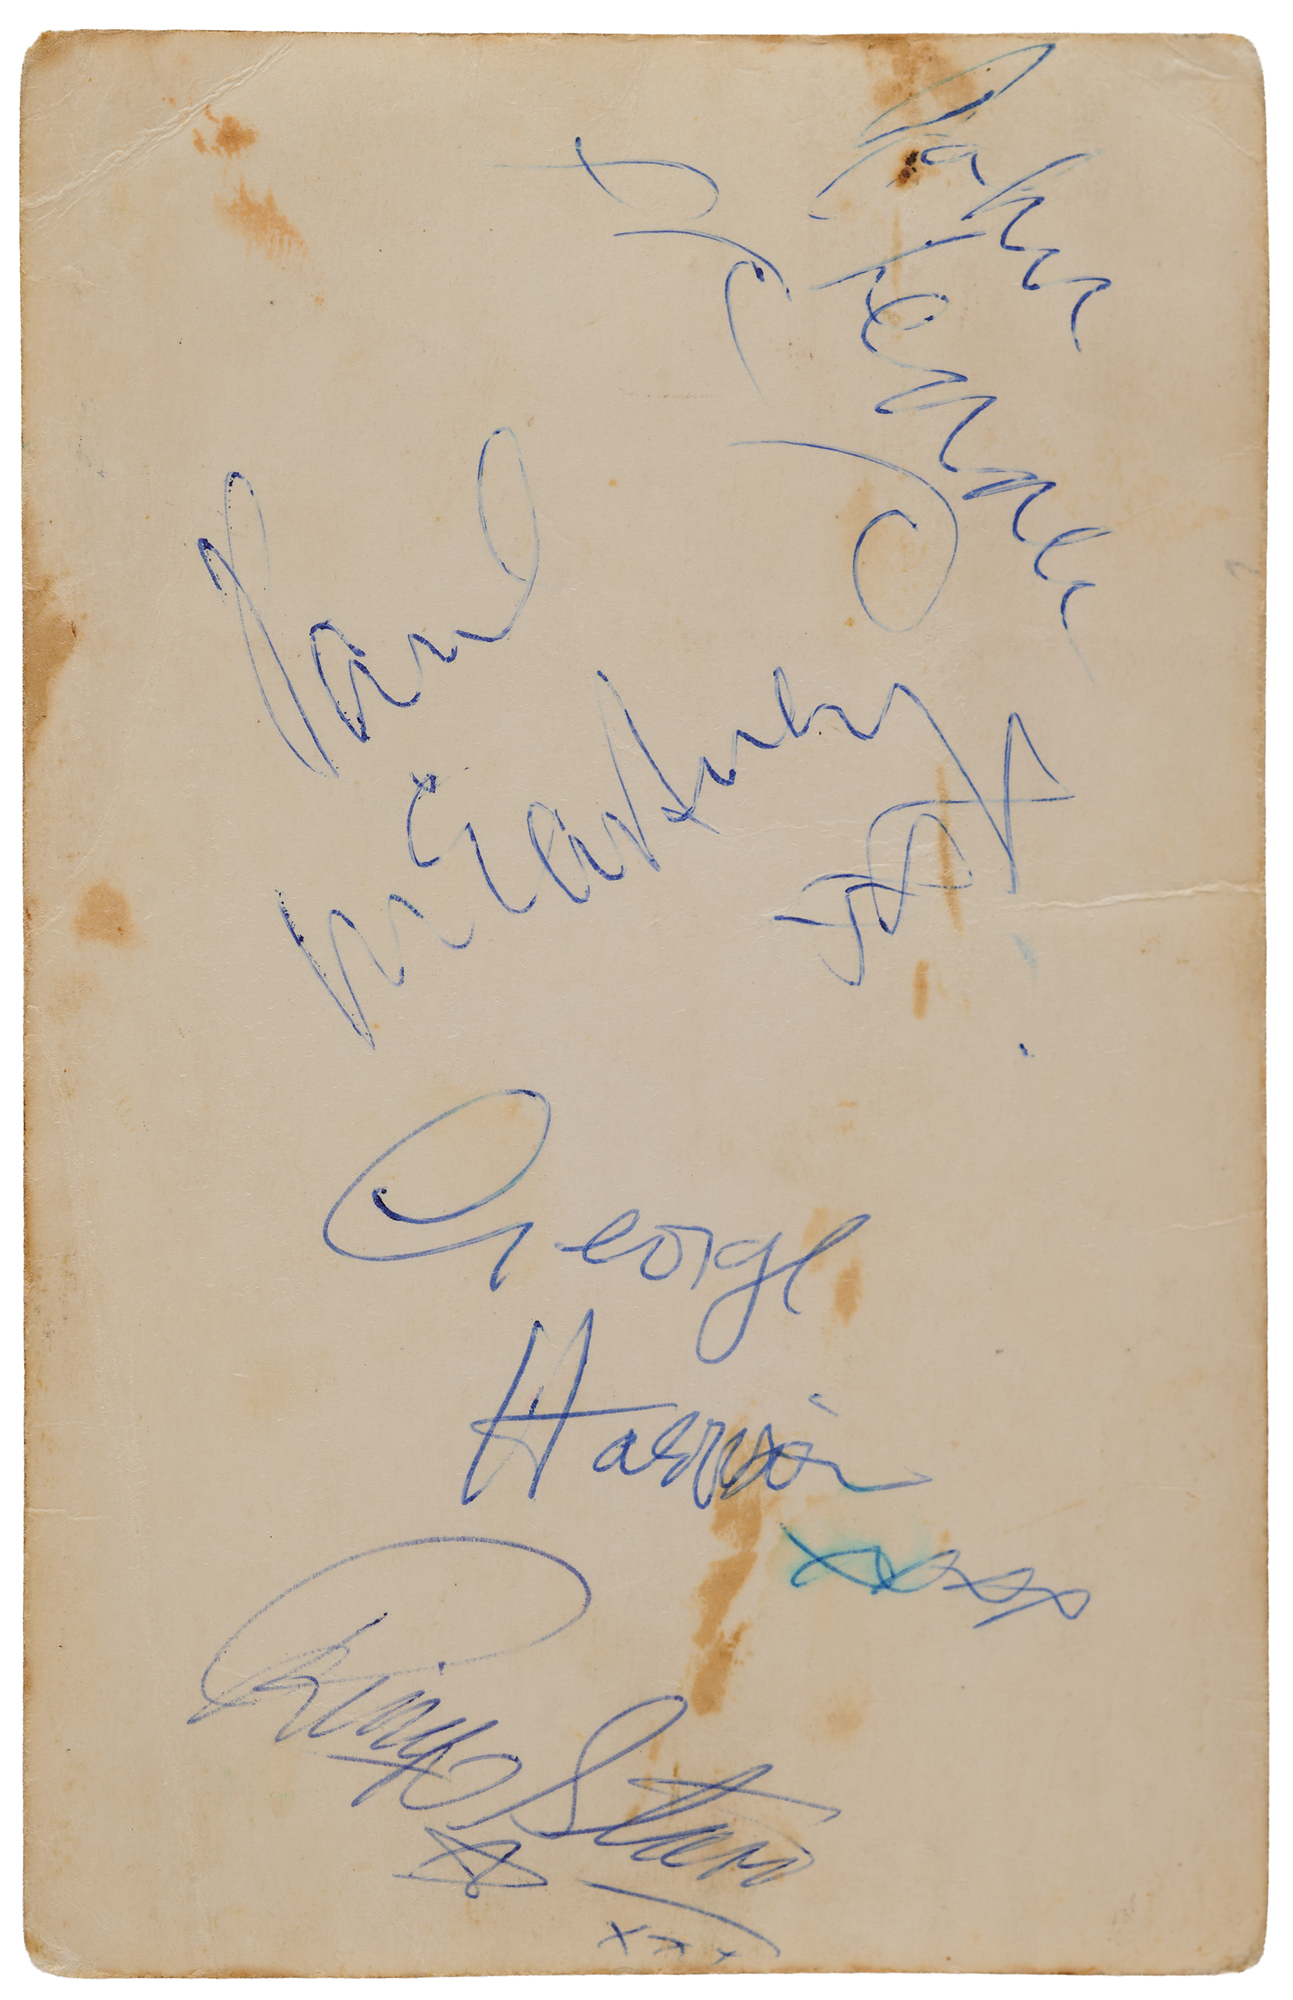 John
Lennon
Paul
McCartney
George
Harrison
xxxx
Ringo Starr
xxx